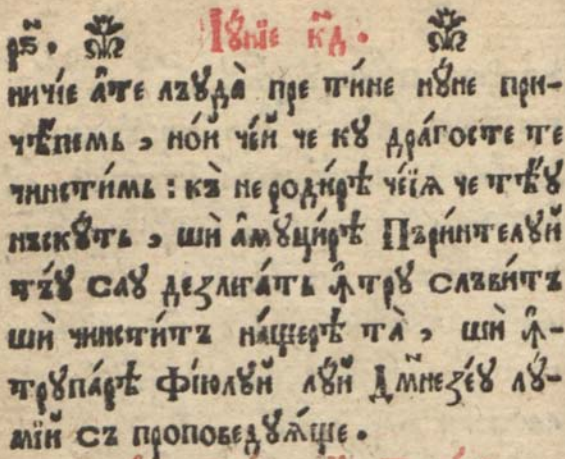 рѕ҃. Іꙋ́нїе к҃д.
ничіе а҆те лъꙋда̀ пре ти́не нꙋ́не при-
чѣ́пемь, но́й че́й че кꙋ дра́госте те
чинсти́мь: къ̀ не роди́рѣ че́їѧ че тѣ́ꙋ
нъскꙋ́ть, шѝ а҆мꙋци́рѣ Пъри́нтелꙋй
тъ́ꙋ саꙋ дезлега́ть ꙟ҆трꙋ слъви́тъ
шѝ чинсти́тъ на́щерѣ та̀, шѝ ꙟ҆-
трꙋпа́рѣ Фїюлꙋ́й лꙋ́й Дм҃незе́ꙋ лꙋ́-
мїй съ проповедꙋѧ́ще.